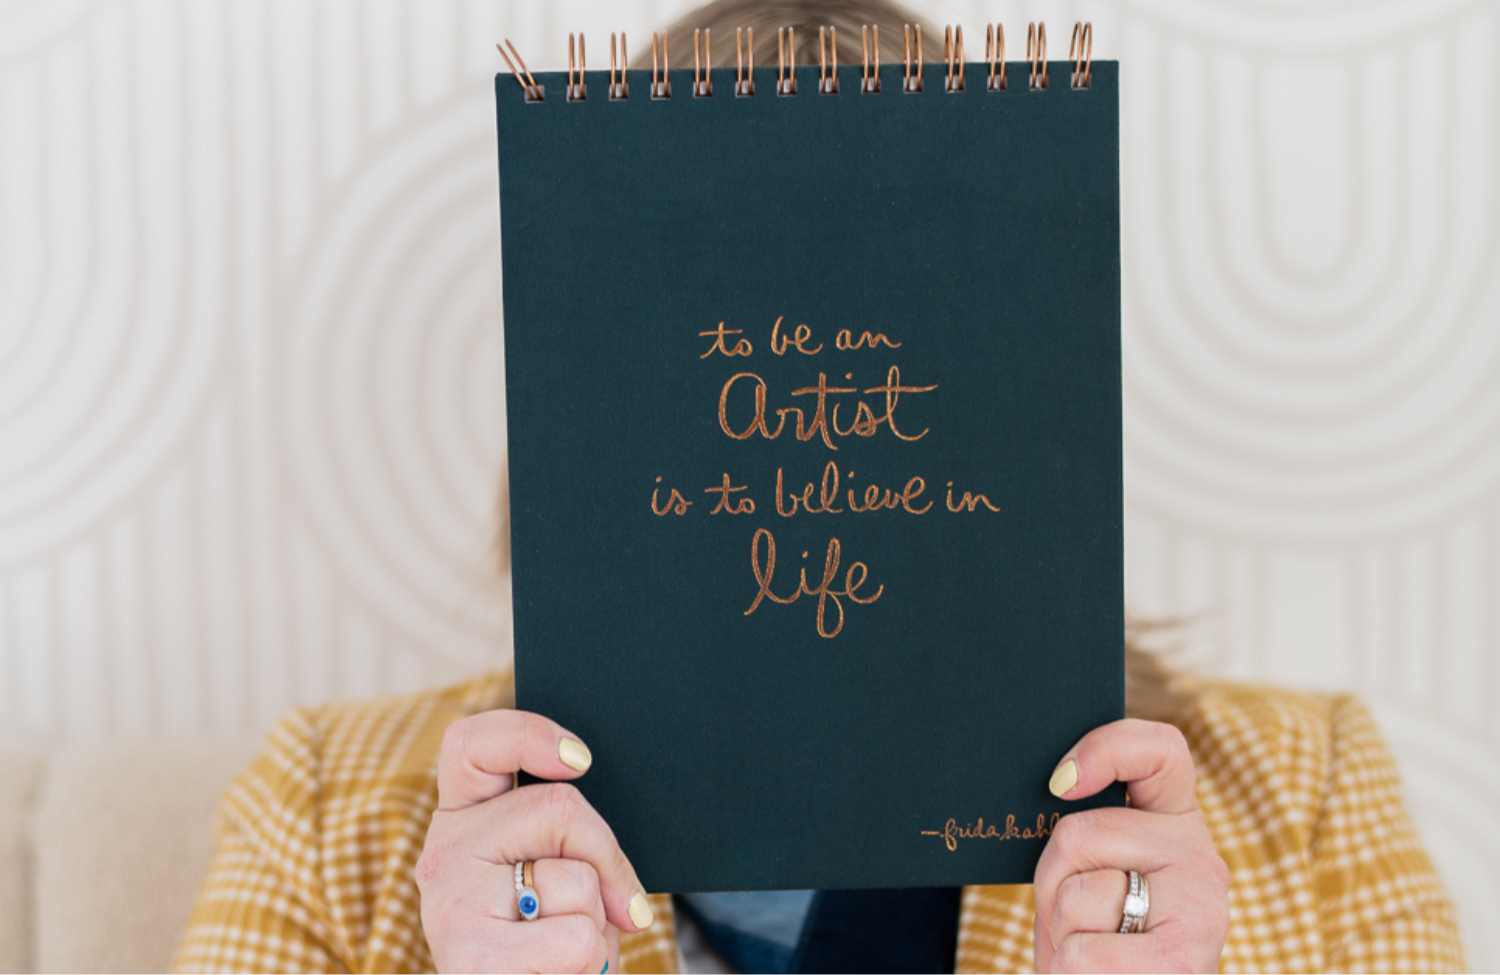 to be an
Artist
is to believe in
life
—frida kahl